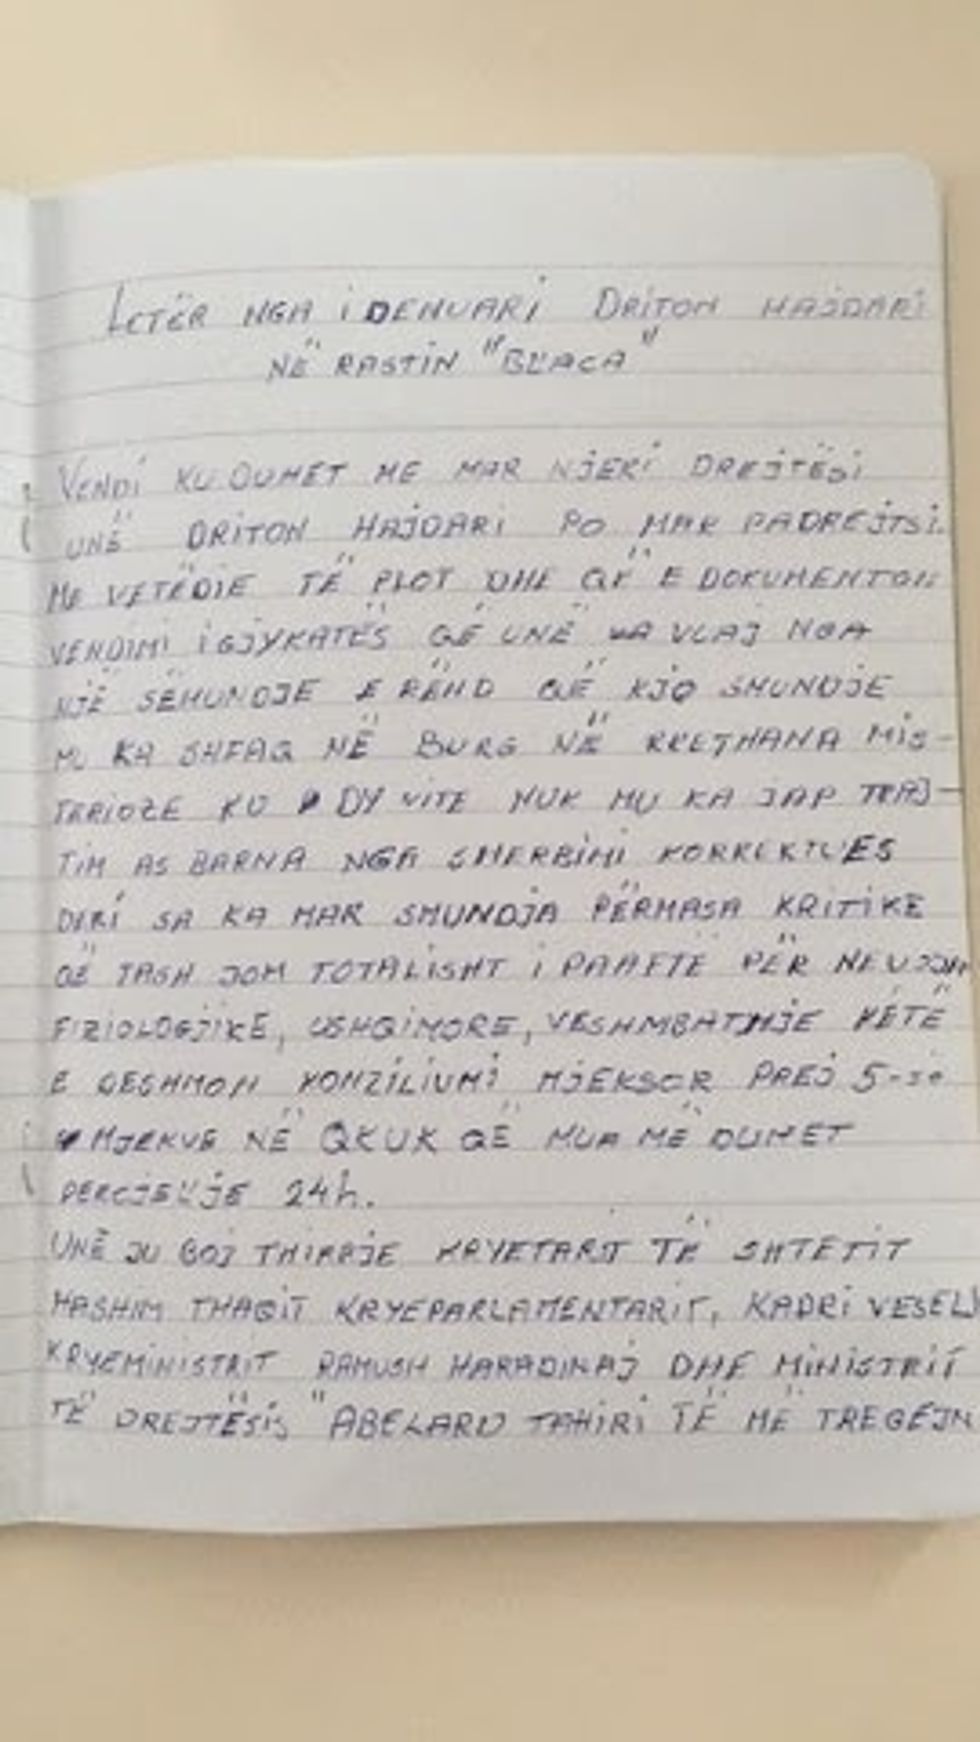 LETËR NGA I DENUARI DRITON HAJDARI
NË RASTIN "BLLACA"
VENDI KU DUHET ME MAR NJERI DREJTËSI
UNË DRITON HAJDARI PO MAR PADREJTSI.
ME VETËDIE TË PLOT DHE QË E DOKUMENTON
VENDIMI I GJYKATËS QË UNË VUAJ NGA
NJË SËMUNDJE E RËND QË KJO SMUNDJE
MU KA SHFAQ NË BURG NË RRETHANA MIS-
TERIOZE KU DY VITE NUK MU KA JAP TRAJ-
TIM AS BARNA NGA SHERBIMI KORREKTUES
DERI SA KA MAR SMUNDJA PËRMASA KRITIKE
QË TASH JOM TOTALISHT I PAAFTË PËR NEVOJA
FIZIOLOGJIKE, USHQIMORE, VESHMBATHJE KËTË
E DESHMON KONZILIUMI MJEKSOR PREJ 5-SË
MJEKVE NË QKUK QË MUA ME DUHET
PERCJELLJE 24h.
UNË JU BOJ THIRRJE KRYETARIT TË SHTETIT
HASHIM THAQIT KRYEPARLAMENTARIT, KADRI VESELI
KRYEMINISTRIT RAMUSH HARADINAJ DHE MINISTRIT
TË DREJTËSIS ABELARD TAHIRI TË MË TREGEJN